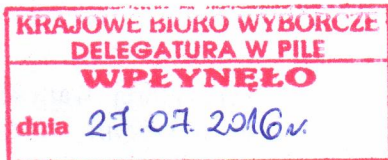 KRAJOWE BIURO WYBORCZE
DELEGATURA W PILE
WPŁYNĘŁO
dnia 27.07.2016r.